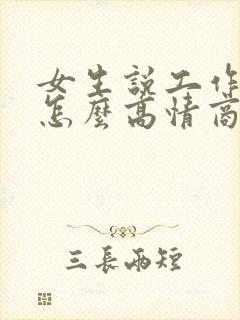 女生說工作
怎麼高情商
三長兩短